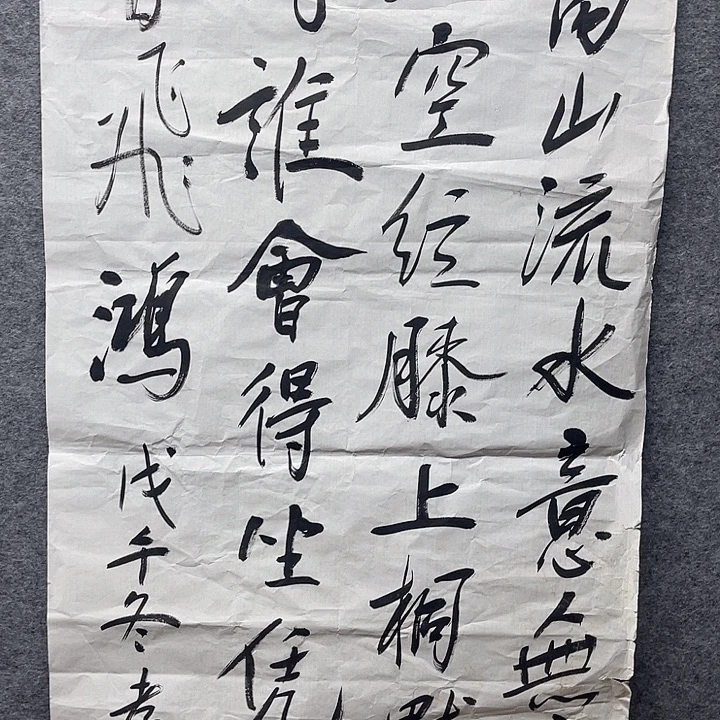 山流水意無
空絃膝上桐默
誰會得坐凭
飛鴻
戊午冬